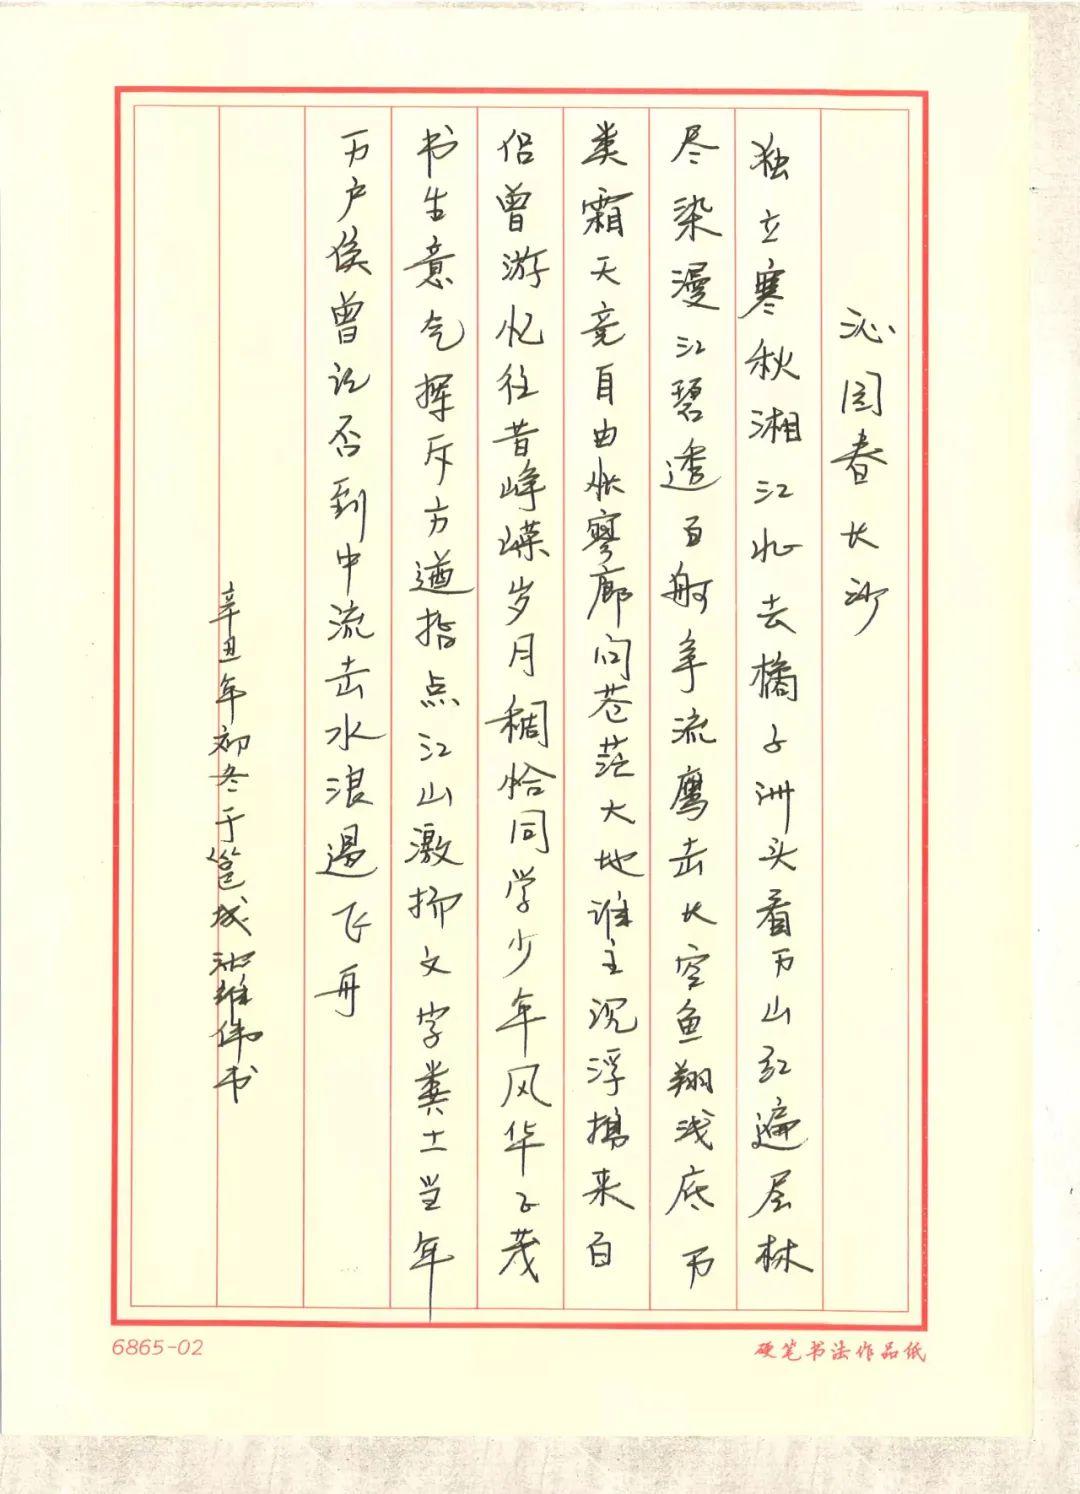 沁园春长沙
独立寒秋湘江北去橘子洲头看万山红遍层林
尽染漫江碧透百舸争流鹰击长空鱼翔浅底万
类霜天竞自由怅寥廓问苍茫大地谁主沉浮携来百
侣曾游忆往昔峥嵘岁月稠恰同学少年风华正茂
书生意气挥斥方遒指点江山激扬文字粪土当年
万户侯曾记否到中流击水浪遏飞舟
辛丑年初冬于邕城伟书
6865-02
硬笔书法作品纸